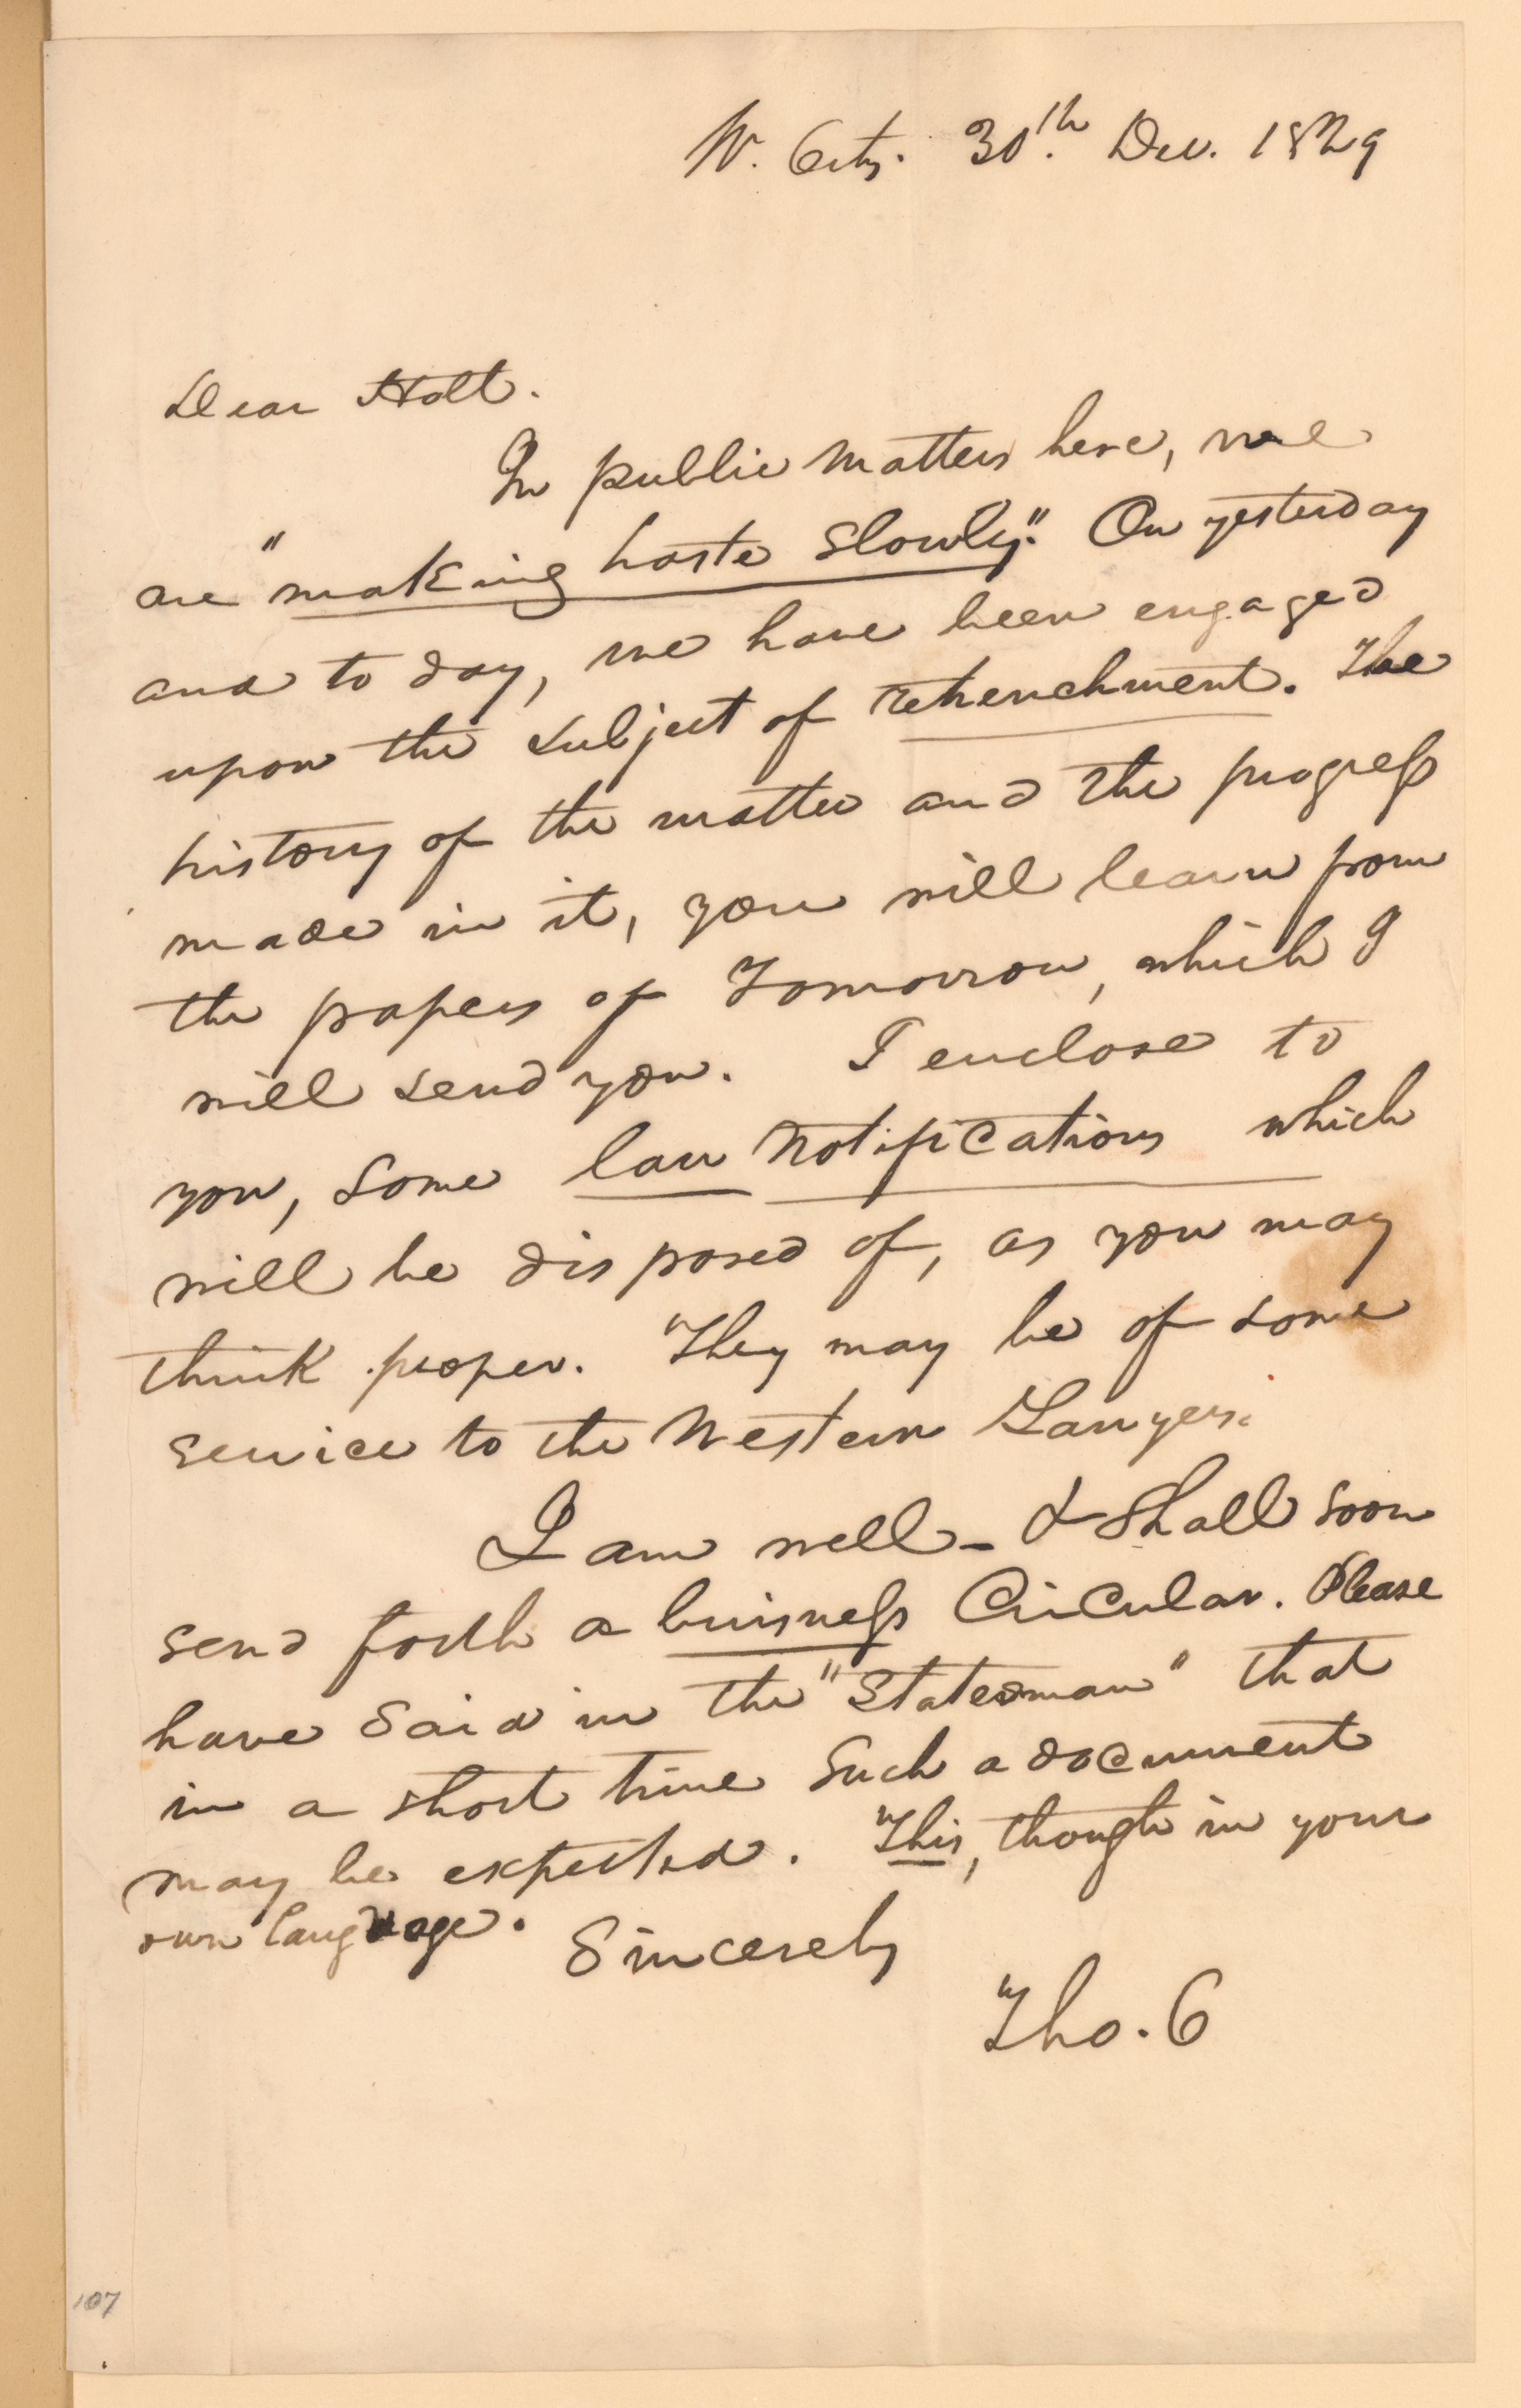 W. City. 30th. Dec. 1829
Dear Holt.
In public matters here, we
are "making haste slowly". On yesterday
and to day, we have been engaged
upon the subject of retrenchment. The
history of the matter and the progress
made in it, you will learn from
the papers of Tomorrow, which I
will send you. I enclose to
you, some law notifications which
will be disposed of, as you may
think proper. They may be of some
service to the Western Lawyers.
I am well - & shall soon
send forth a buisness Circular. Please
have said in the "Statesman" that
in a short time such a document
may be expected. This, though in your
own language.
Sincerely
Tho. C
107